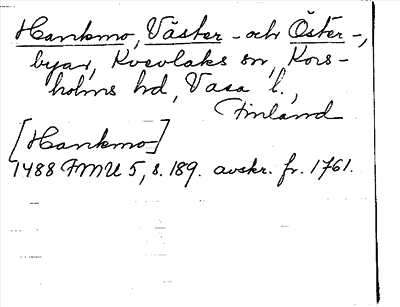 Hankmo, Väster- och Öster-,
byar, Kvevlaks sn, Kors-
holms hd, Vasa l.,
Finland
[Hankmo]
1488 FMU 5, s. 189. avskr. fr. 1761.